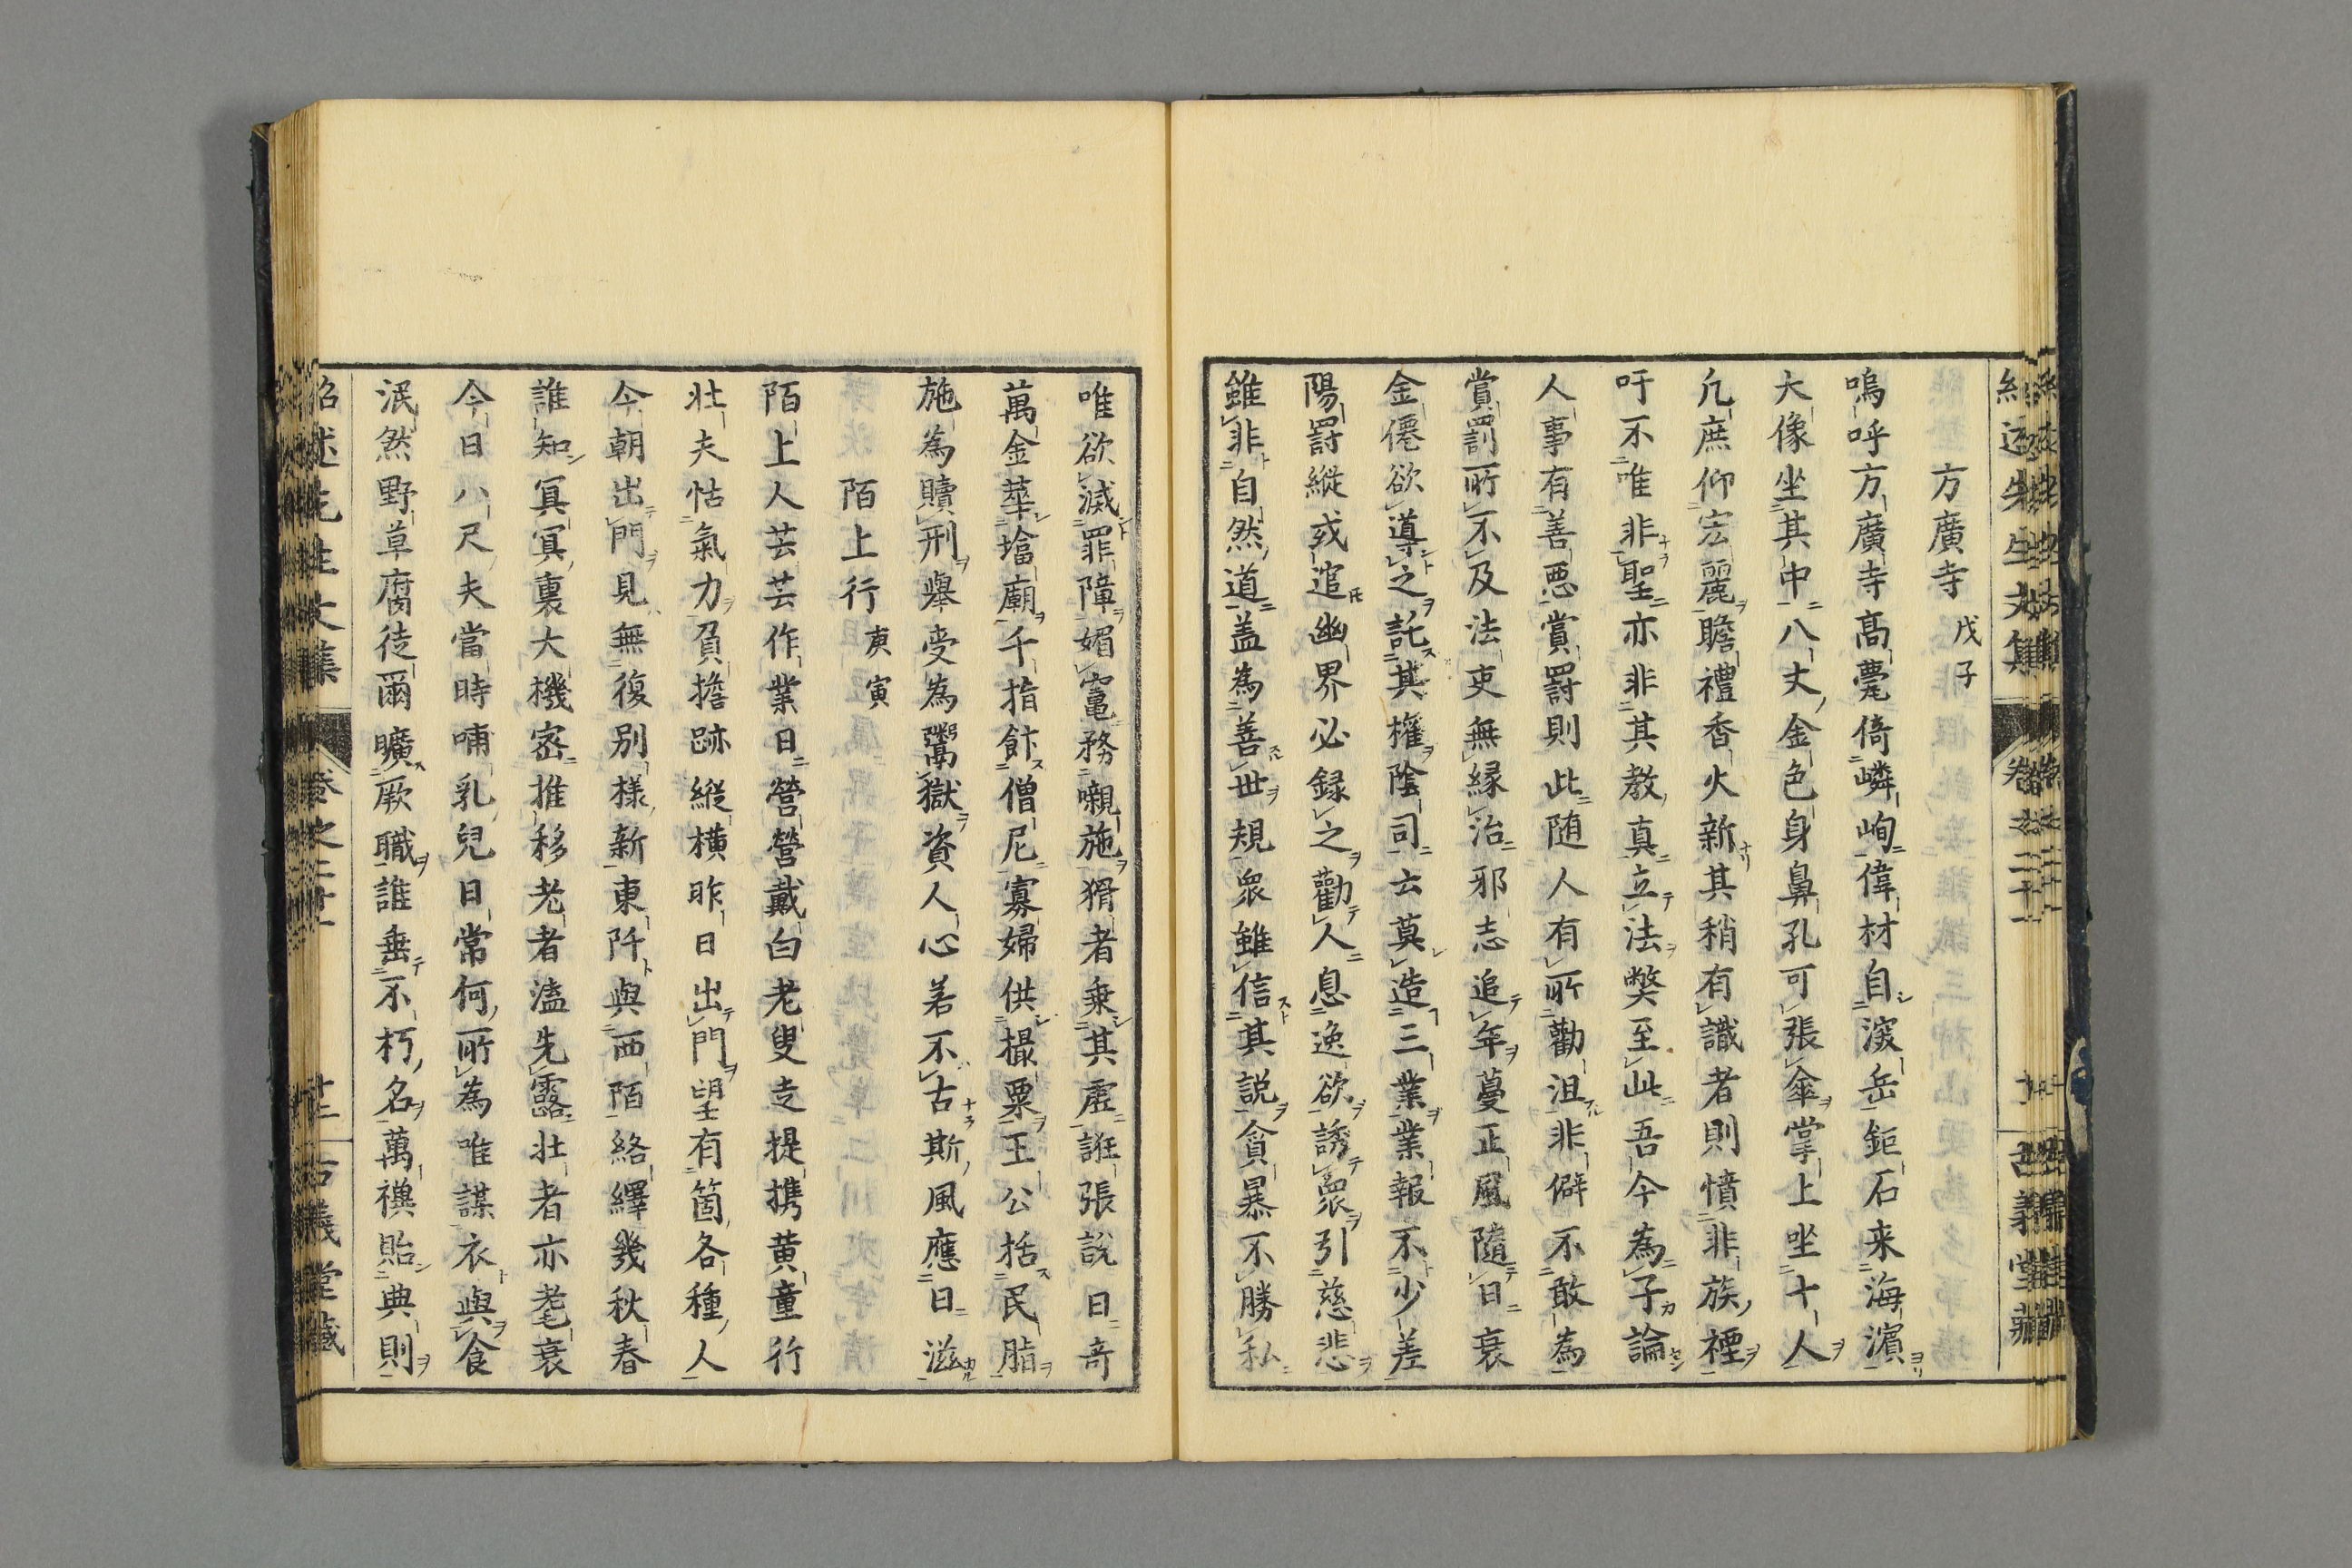 方廣寺 戊子
嗚呼方廣寺髙甍倚嶙峋偉材自深岳鉅石来海濵
大像坐其中八丈金色身鼻孔可張傘掌上坐十人
凢庶仰宏麗瞻禮香火新其稍有識者則憤非族禋
吁不唯非聖亦非其教真立法獘至此吾今為子論
人事有善悪賞罸則此随人有所勸沮非僻不敢為
賞罰所不及法吏無縁治邪志追年蔓正風隨日衰
金僊欲導之託其權陰司云莫造三業業報不少差
陽罸縦或逭幽界必録之勸人息逸欲誘衆引慈悲
雖非自然道盖為善世規衆雖信其説貪暴不勝私
唯欲滅罪障媚竈務嚫施猾者乗其虚誑張說日竒
萬金葺塔廟千指飰僧尼寡婦供撮粟王公括民脂
施為贖刑舉受為鬻獄資人心若不古斯風應日滋
陌上行 庚寅
陌上人芸芸作業日營營戴白老叟走提携黄童行
壮夫怙氣力負擔跡縦横昨日出門望有箇各種人
今朝出門見無復別樣新東阡與西陌絡繹幾秋春
誰知冥冥裏大機密推移老者溘先露壮者亦耄衰
今日八尺夫當時哺乳兒日常何所為唯謀衣與食
泯然野草腐徒爾曠厥職誰垂不朽名萬禩貽典則
紹述先生文集 卷之二十一 十二 古義堂藏